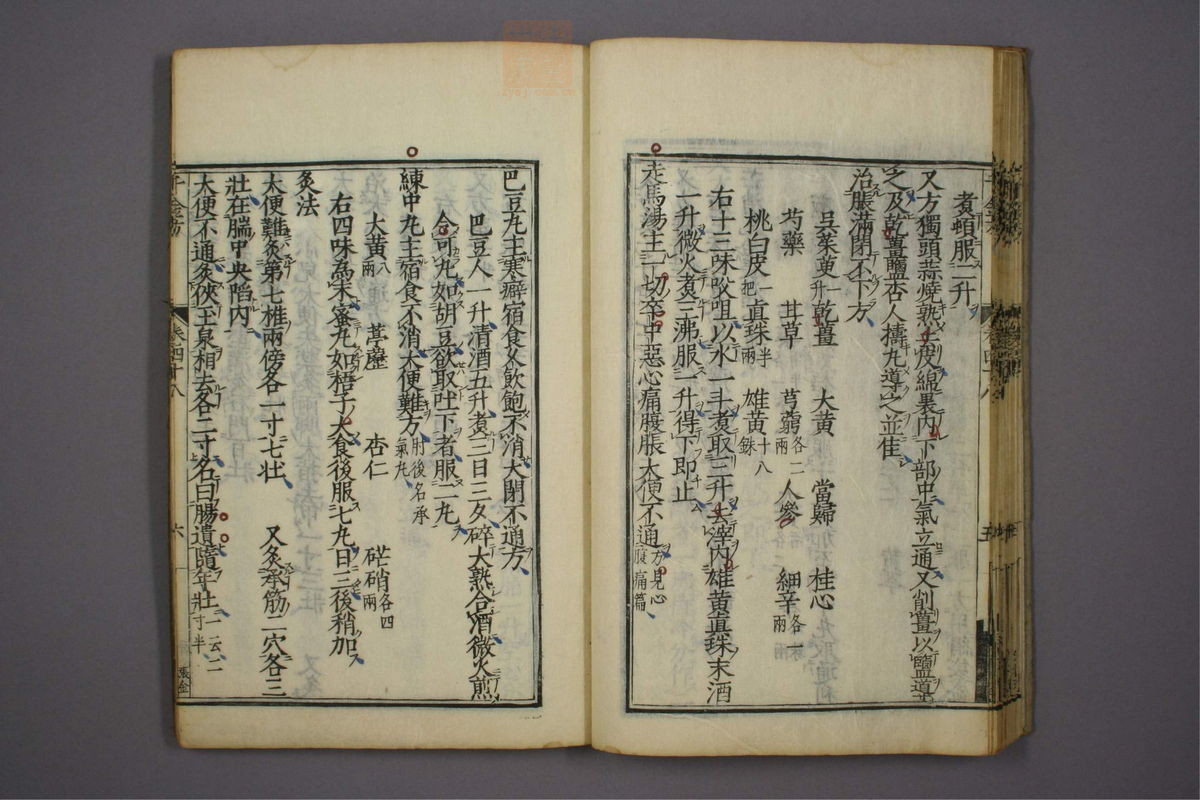 煑頓服二升
又方獨頭蒜燒熟去皮綿裹内下部中氣立通又削薑以鹽導
之及乾薑鹽杏人擣丸導之並佳
治脹滿閉不下方
吳茱萸一升 乾薑 大黃 當歸 桂心
芍藥 甘草 芎藭各二兩 人參 細辛各一兩
桃白皮一把 眞珠半兩 雄黃十八銖
右十三味㕮咀以水一斗煮取三升去滓内雄黃眞珠末酒
一升微火煮三沸服一升得下即止
走馬湯主一切卒中惡心痛腹脹大便不通方見心腹痛篇
巴豆丸主寒癖宿食久飲飽不消大閉不通方
巴豆人一升清酒五升煮三日三夕碎大熟合酒微火煎
令可丸如胡豆欲取吐下者服二丸
練中丸主宿食不消大便難方肘後名承氣丸
大黃八兩 葶藶 杏仁 芒硝各四兩
右四味爲末蜜丸如梧子大食後服七丸日三後稍加
灸法
大便難灸第七椎兩傍各一寸七壯 又灸承筋二穴各三
壯在腨中央陷内
大便不通灸俠玉泉相去各二寸名曰腸遺隨年壯一云二寸半
千金方
卷四十八
六
張金
五